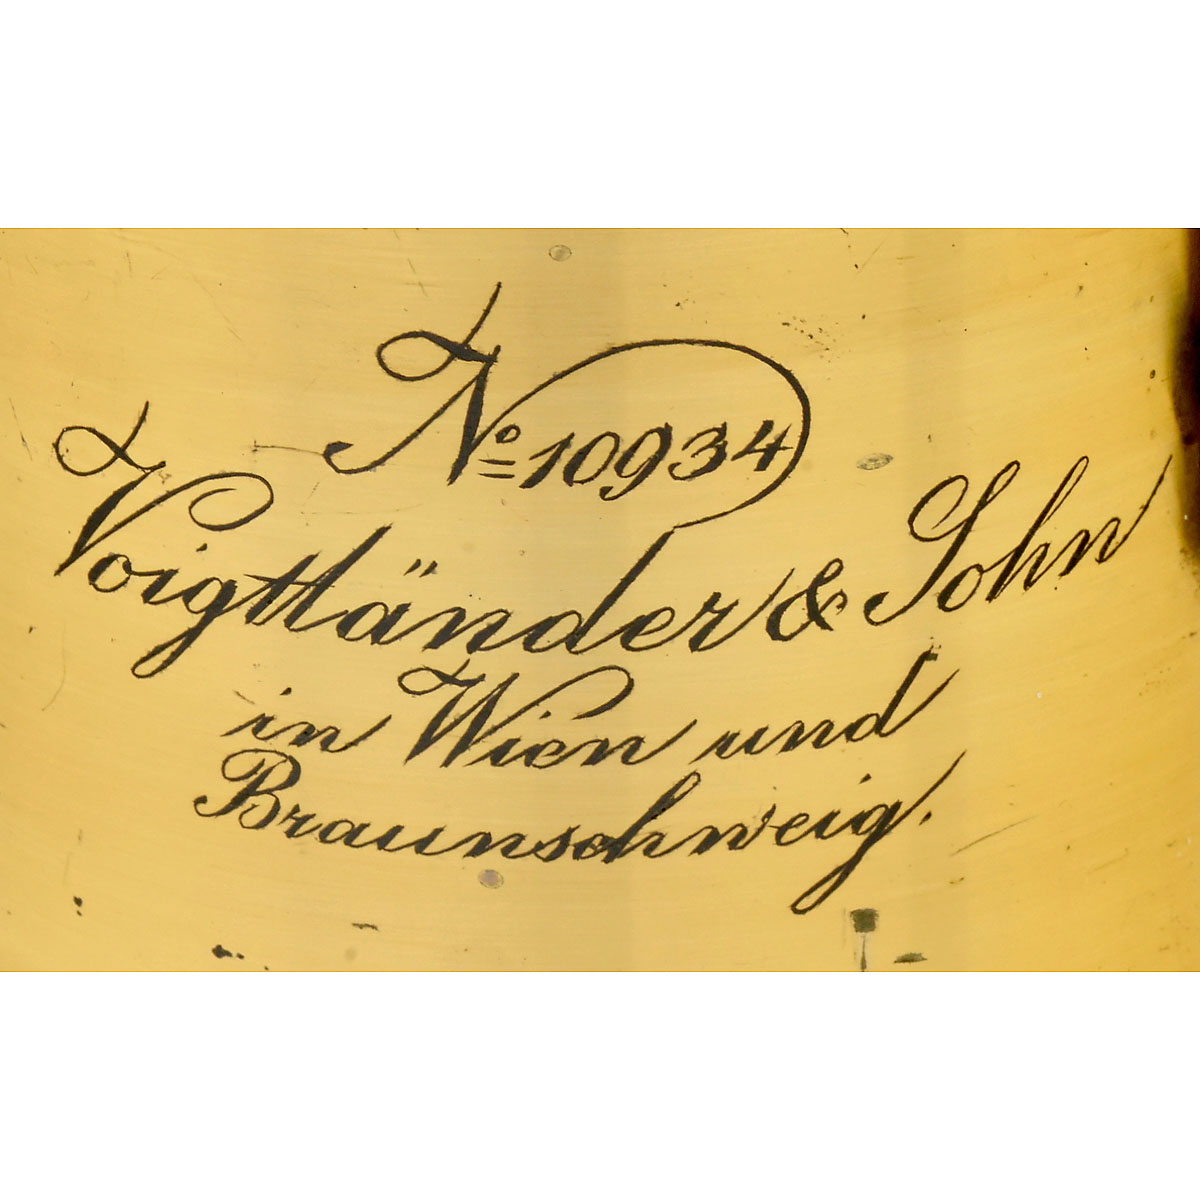 Nº 10934
Voigtländer & Sohn
in Wien und
Braunschweig.